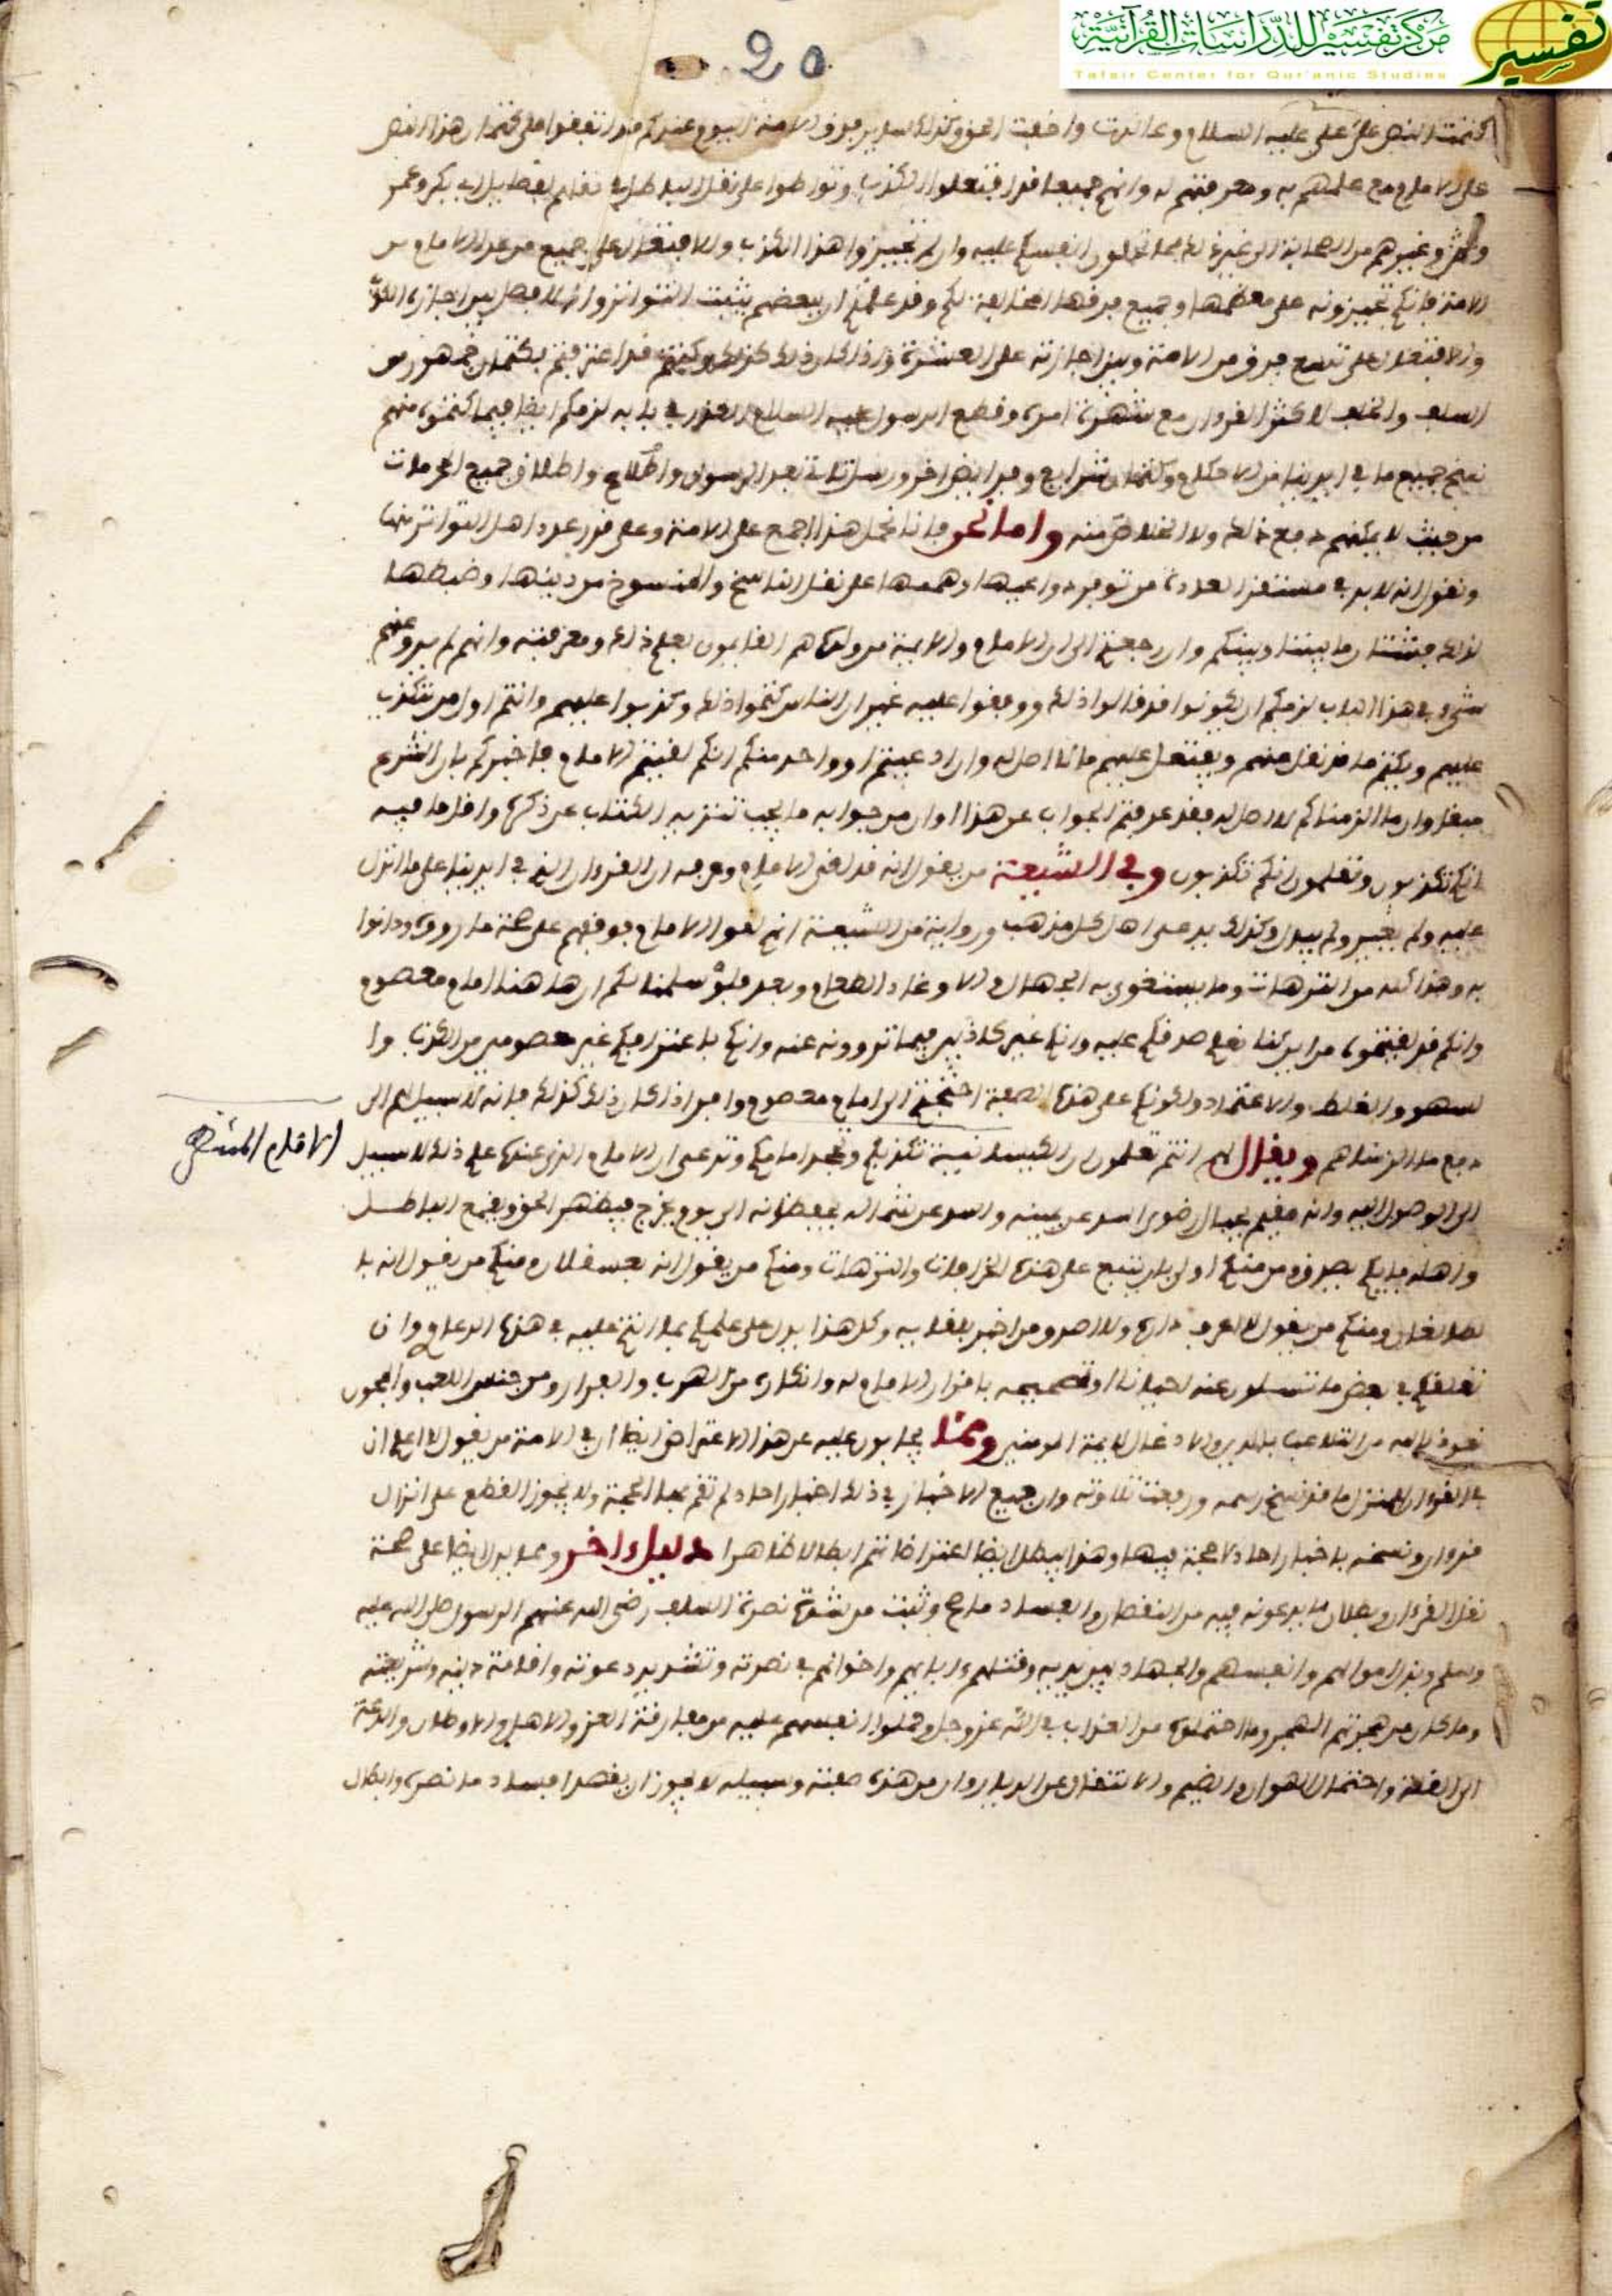 مركز تفسير للدراسات القرآنية
Tafsir Center for Qur'anic Studies
تفسير
20
كتمت النص على علي عليه السلام وعاندت واخفت الحق وكذلك ساير فرق الامة اليوم عندكم قد اتفقوا على كتمان هذا النص
على الامام مع علمهم به ومعرفتهم له وانهم جميعا قد افتعلوا الكذب وتواطوا على نقل الباطل في نقلهم لفضايل ابي بكر وعمر
وغيرهم من الصحابة الى غير ذلك مما تحملون انفسكم عليه وان لم تجيزوا هذا الكذب والافتعال على جميع من عدا الامام من
الامة فانكم تجيزونه على معظمها وجميع فرقها المخالفة لكم وقد علمتم ان ببعضهم يثبت التواتر وانه لا فصل بين اجازة الكذب
والافتعال على تسع فرق من الامة وبين اجازته على العشرة واذا كان ذلك كذلك وكنتم قد اعترفتم بكتمان جمهور من
السلف والخلف لاكثر القرءان مع شهرة امره وقطع الرسول عليه السلام العذر في بابه لزمكم ايضا فيما كتموه منهم
نسخ جميع ما في ايدينا من الاحكام وكتمان شرايع وفرايض اخر ورسل ثلاثة بعد الرسول واطلاق جميع المحرمات
من حيث لا يمكنهم دفع ذلك ولا الخلاص منه واما نحن فانا نحيل هذا اجمع على الامة وعلى قدر عدد اهل التواتر منها
ونقول انه لا بد في مستقر العادة من توفر دواعيها وهممها على نقل الناسخ والمنسوخ من دينها وضبطها
لذلك فشتان ما بيننا وبينكم وان رجعتم الى ان الامام والايمة من ولده هم القايمون بعلم ذلك ومعرفته وانهم لم يرو عنهم
شيء في هذا الباب لزمكم ان يكونوا قد قالوا ذلك ووقفوا عليه غير ان الناس كتموا ذلك وكذبوا عليهم وانتم اول من يكذب
عليهم ويكتم ما قد نقل عنهم ويفتعل عليهم ما لا اصل له وان ادعيتم او واحد منكم انكم لقيتم الامام فاخبركم بان الشرع
مبقى وان ما الزمناكم لا اصل له فقد عرفتم الجواب عن هذا وان من جوابه ما يجب تنزيه الكتاب عن ذكره واقل ما فيه
انكم تكذبون وتعلمون انكم تكذبون وفي الشيعة من يقول انه قد لقي الامام وعرفه ان القرءان الذي في ايدينا على ما انزل
عليه ولم يغير ولم يبدل وكذلك يدعي اهل كل مذهب ورواية من الشيعة انهم لقوا الامام فوقفهم على صحة ما رووه ودانوا
به وهذا كله من الترهات وما يستغوى به الجهال والاوغاد الطغام وبعد فلو سلمنا لكم ان هاهنا امام معصوم
وانكم قد لقيتموه من اين لنا نعلم صدقكم عليه وانكم غير كاذبين فيما تروونه عنه وانكم باعترافكم غير معصومين من الكذب وا
لسهو والغلط والاعتماد ولكونكم على هذه الصفة احتجتم الى امام معصوم وافر اذا كان ذلك كذلك فانه لا سبيل لهم الى
دفع ما الزمناهم ويقال لهم انتم تعلمون ان الكيسانية تكذبكم وتجحد امامكم وتدعي ان الامام الذي عندها علم ذلك لا سبيل
الى الوصول اليه وانه مقيم بجبال رضوى اسد عن يمينه واسد عن شماله يحفظانه الى يوم يخرج فيظهر الحق ويقمع الباطل
واهله فبايكم يصدق ومن منكم اولى بان يتبع على هذه الخرافات والترهات ومنكم من يقول انه بعسقلان ومنكم من يقول انه با
لطالقان ومنكم من يقول لا اعرف داره ولا اصدق من اخبر بلقايه وكل هذا يدل على علمكم بما انتم عليه في هذه الدعاوي وان
تعلقكم في بعض ما تسالون عنه احيانا او تصحيحه باقرار الامام له وانكاره من الهرب والفرار ومن جنس اللعب والمجون
نعوذ بالله من التلاعب بالدين والادغال لايمة المومنين ومما يجابون عليه عن هذا الاعتراض ايضا ان في الامة من يقول لا اعلم ان
في القرءان المنزل ما قد نسخ رسمه ورفعت تلاوته وان جميع الاخبار في ذلك اخبار احاد لم تقم بها الحجة ولا يجوز القطع على انزال
قرءان ونسخه باخبار احاد لا حجة فيها وهذا يبطل ايضا اعتراضاتهم ابطالا ظاهرا دليل ءاخر ومما يدل ايضا على صحة
نقل القرءان وبطلان ما يدعونه فيه من النقصان والفساد ما صح وثبت من شدة نصرة السلف رضي الله عنهم الرسول صلى الله عليه
وسلم وبذل اموالهم وانفسهم والجهاد بين يديه وقتلهم ءاباءهم واخوانهم في نصرته وتشديد دعوته واقامة دينه وشريعته
وما كان من هجرتهم الهجر وما احتملوه من العذاب في الله عز وجل وحملوا انفسهم عليه من مفارقة العز والاهل والاوطان والدعة
الى القلة واحتمال الهوان والضيم والانتقال عن الديار وان من هذه صفته وسبيله لا يجوز ان يقصد افساد ما نصره وابطال